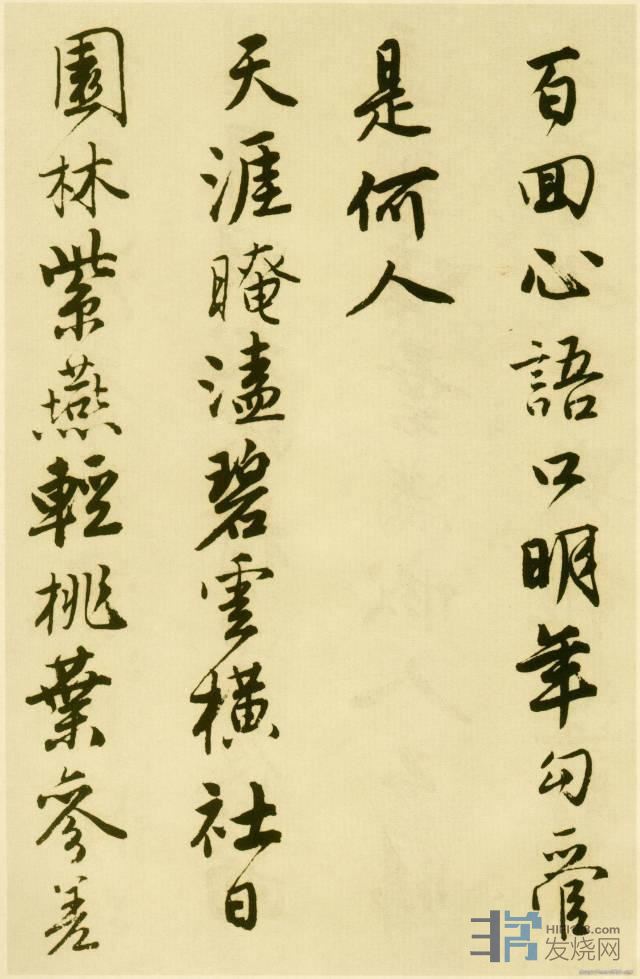 百回心語口明年勾管
是何人
天涯晻溘碧雲橫社日
園林紫燕輕桃葉參差
发烧网